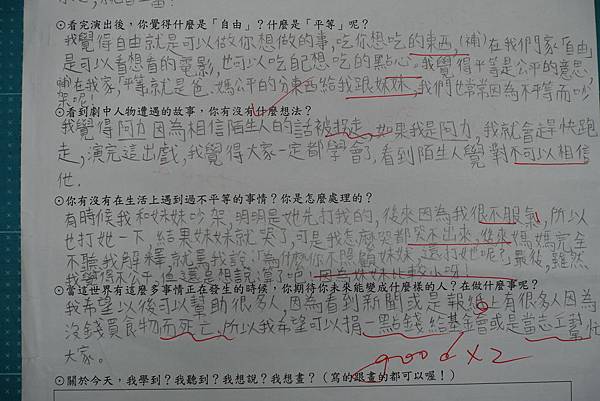 ⊙看完演出後，你覺得什麼是「自由」？什麼是「平等」呢？
我覺得自由就是可以做你想做的事,吃你想吃的東西,(補)在我們家「自由」
是可以看想看的電影,也可以吃自己想吃的點心。我覺得平等是公平的意思,
(補)在我家,「平等」就是爸、媽公平的分東西給我跟妹妹,我們也常常因為不平等而吵
架呢!
⊙看到劇中人物遭遇的故事，你有沒有什麼想法？
我覺得阿力因為相信陌生人的話被拐走,如果我是阿力,我就會趕快跑
走,演完這出戲,我覺得大家一定都學會了,看到陌生人覺對不可以相信
他.
⊙你有沒有在生活上遇到過不平等的事情？你是怎麼處理的？
有時候我和妹妹吵架,明明是她先打我的,後來因為我很不服氣,所以
也打她一下,結果妹妹就哭了,可是我怎麼哭都哭不出來,後來媽媽完全
不聽我解釋就罵我說:「為什麼你不照顧妹妹,還打她呢?」最後,雖然
我覺得不公平,但還是想說:算了吧!因為妹妹比較小呀!
⊙當這世界有這麼多事情正在發生的時候，你期待你未來能變成什麼樣的人？在做什麼事呢？
我希望以後可以幫助很多人,因為看到新聞或是報紙上有很多人因為
沒錢買食物而死亡,所以我希望可以捐一點錢給基金會或是當志工幫忙
大家。
good x2
⊙關於今天，我學到？我聽到？我想說？我想畫？（寫的跟畫的都可以喔！）